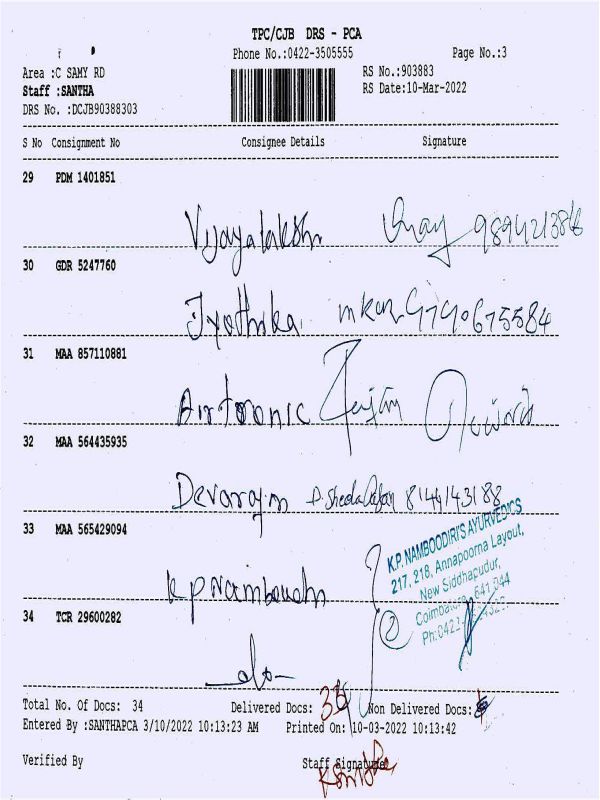 TPC/CJB DRS - PCA
Phone No.:0422-3505555 Page No.:3
Area :C SAMY RD RS No.:903883
Staff :SANTHA RS Date:10-Mar-2022
DRS No. :DCJB90388303
S No Consignment No Consignee Details Signature
29 PDM 1401851
Vijayalakshmi Vijay 9894213816
30 GDR 5247760
Jyothika 9790675584
31 MAA 857110881
Airtronic
32 MAA 564435935
Devarajn 8144143188
33 MAA 565429094
K.P. NAMBOODIRI'S AYURVEDICS
217, 218, Annapoorna Layout,
New Siddhapudur,
Coimbatore 641 044
Ph:0422
K P Namboodri
34 TCR 29600282
2
Total No. Of Docs: 34 Delivered Docs: Non Delivered Docs:
Entered By :SANTHAPCA 3/10/2022 10:13:23 AM Printed On: 10-03-2022 10:13:42
Verified By Staff Signature